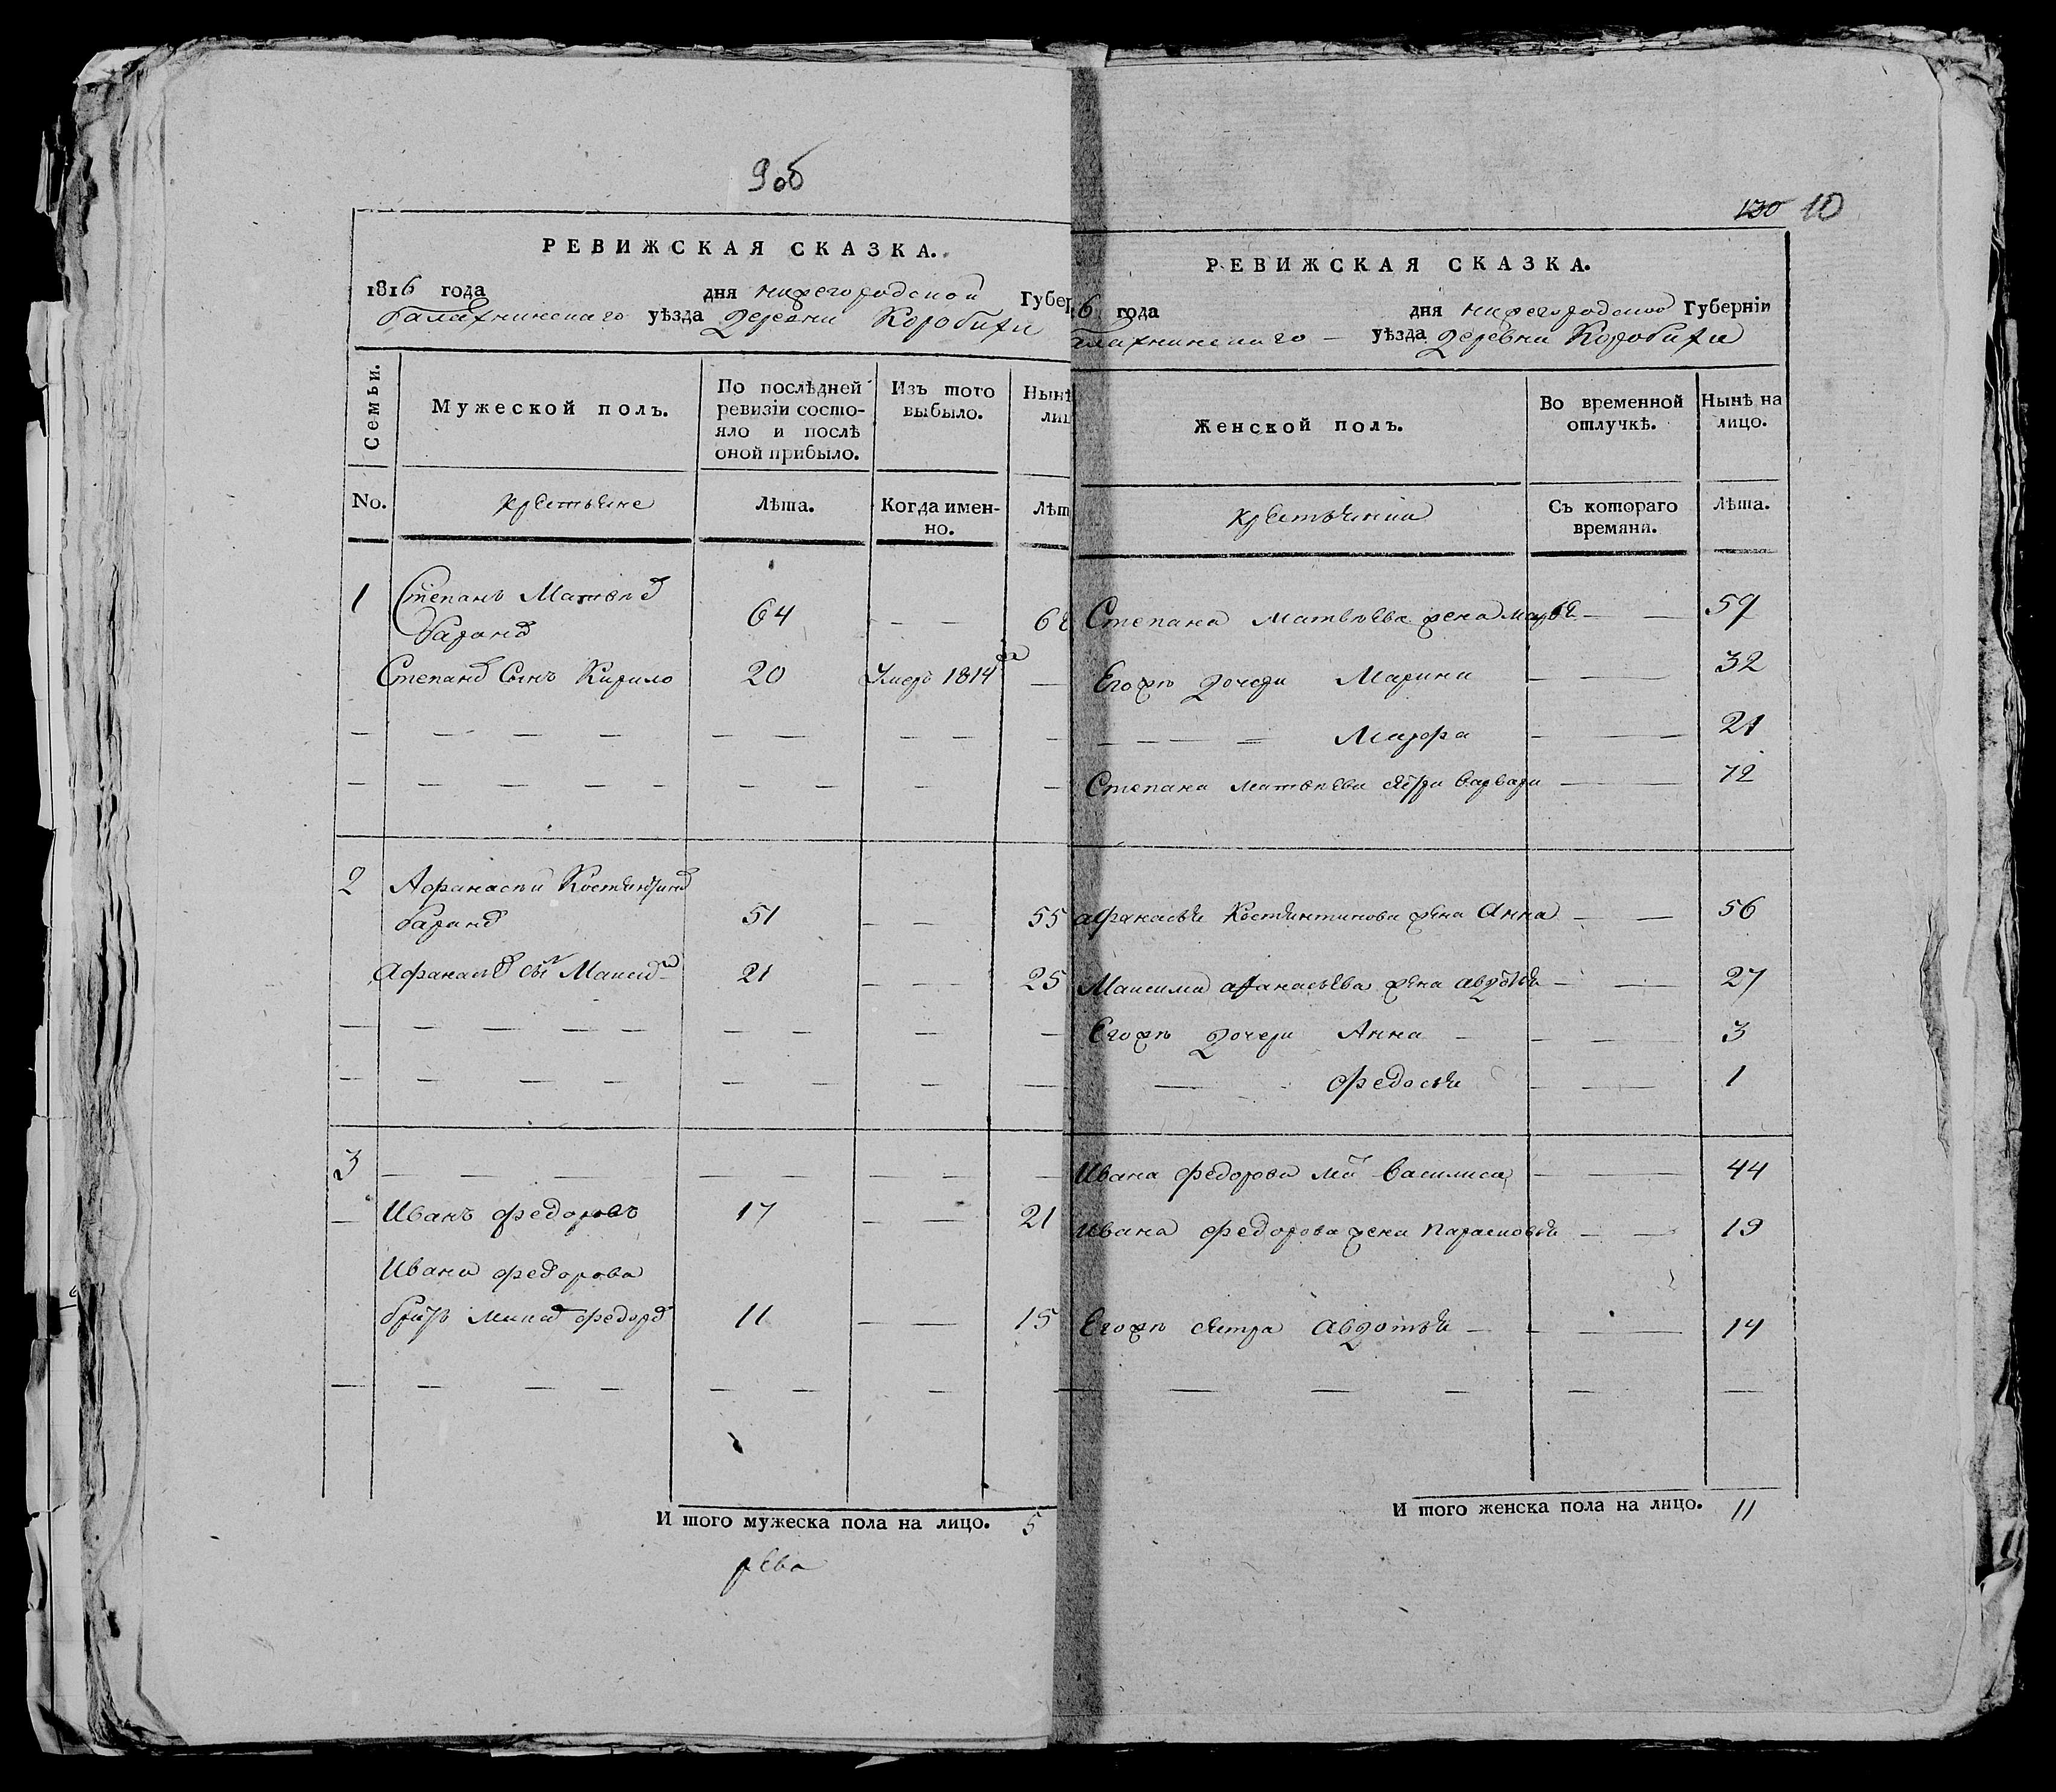 9об
РЕВИЖСКАЯ СКАЗКА.
1816 года дня нижегородской Губер
балахнинскаго уѣзда деревни Коробихи
Семьи.
Мужеской полъ.
По послѣдней ревизіи состо-
яло и послѣ
оной прибыло.
Изъ того
выбыло.
Нынѣ
лиц
No.
крестьяне
Лѣта.
Когда имен-
но.
Лѣт
1 Степанъ Матвѣв
64 — —
Степанв Сынъ Кирило 20 Умеръ 1814 —
2 Афанасѣй
51 — — 55
Афанасьв сы Максим 21 — — 25
3
Иванъ федоровъ 17 — — 21
Ивана федорова
братъ федорв 11 — — 15
И того мужеска пола на лицо. 5
130 10
РЕВИЖСКАЯ СКАЗКА.
6 года дня нижегородской Губерніи
алахнинскаго — уѣзда деревни Коробихи
Женской полъ.
Во временной
отлучкѣ.
Нынѣ на
лицо.
крестьянки
Съ котораго
времяни.
Лѣта.
Степана Матвѣева жена марья — — 59
Егожъ дочери Марина — — 32
Марфа — — 21
Степана матвѣева варвара — 72
афанасья Костянтинова жена Анна — — 56
Максима афанасьева жена авдотья — — 27
Егожъ дочери Анна — — 3
федосья — — 1
Ивана федорова ма василиса — — 44
Ивана федорова жена парасковья — — 19
Егожъ сестра Авдотья — — 14
И того женска пола на лицо. 11